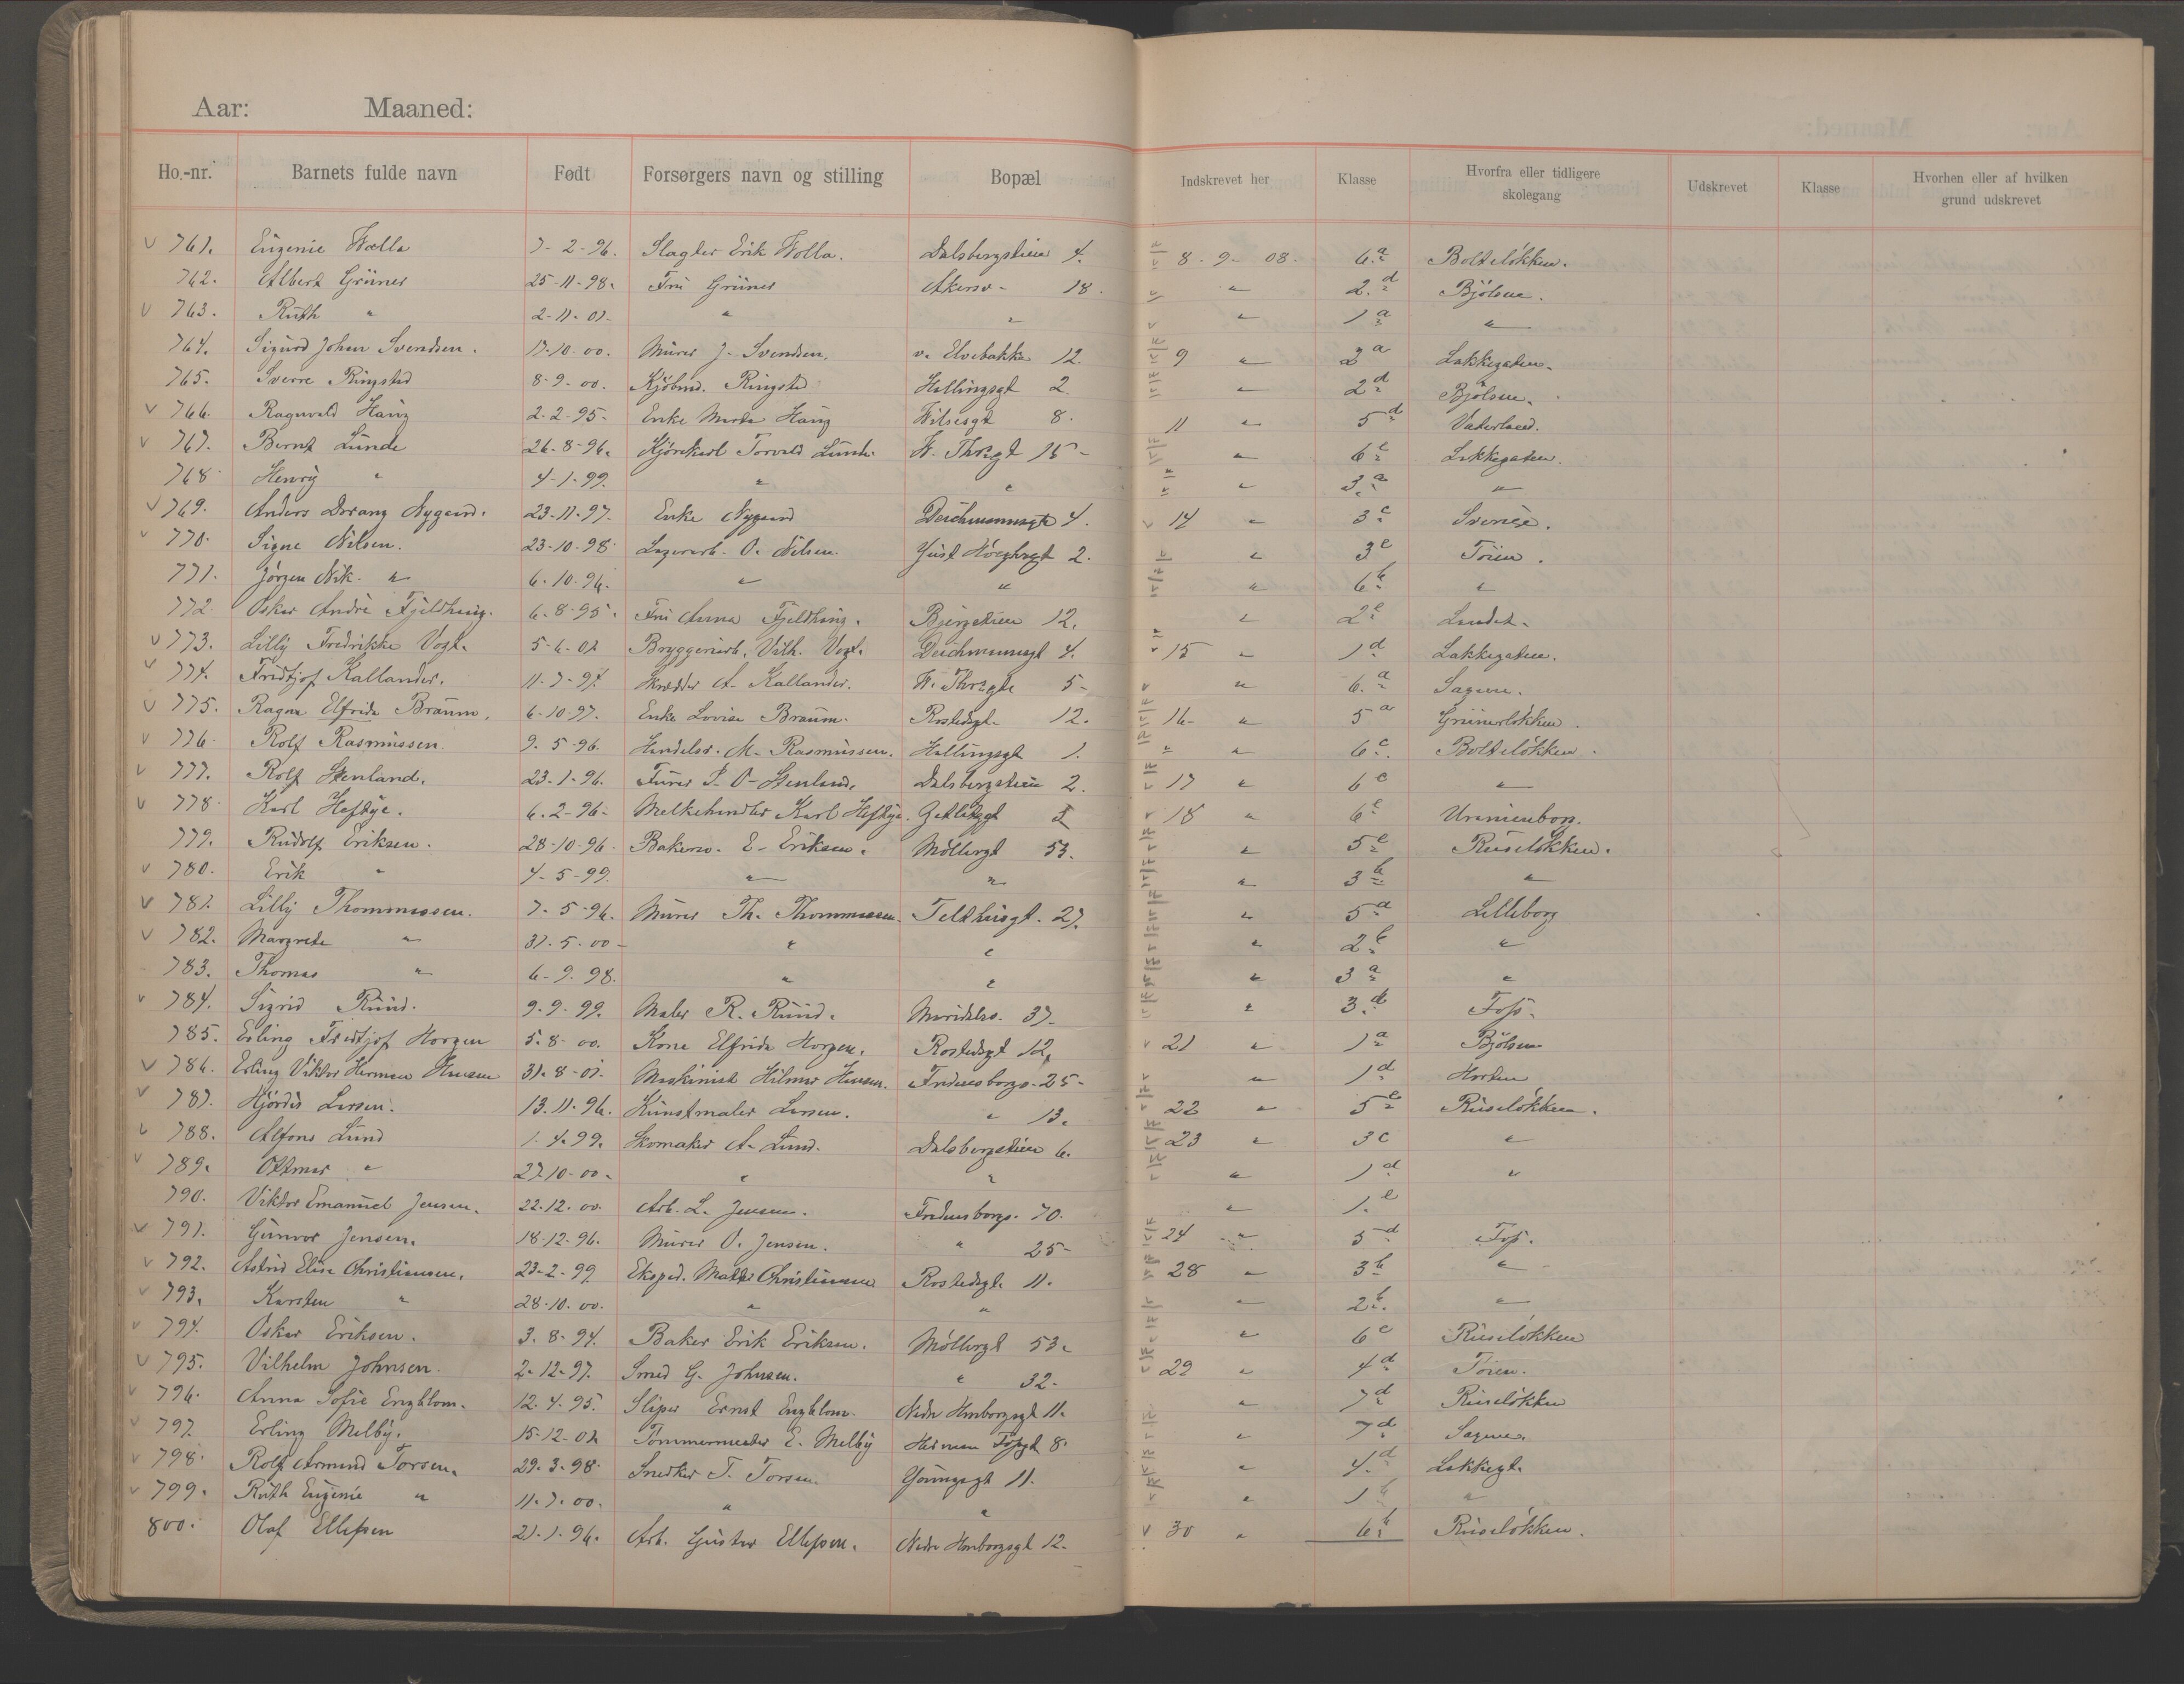 Aar: Maaned:
Ho.-nr. Barnets fulde navn Født Forsørgers navn og stilling Bopæl Indskrevet her Klasse Hvorfra eller tidligere skolegang Udskrevet Klasse Hvorhen eller af hvilken grund udskrevet
v 761. Eugenie Wolla 7-2-96. Slagter Erik Wolla. Dalsbergstien 4. 8-9-08. 6.a Bolteløkken.
762. Albert Grüner 25-11-98. Fru Grüner Akersv- 18. " 2.d Bjølsen.
v 763. Ruth " 2-11-01- " " " 1a "
764. Sigurd Johan Svendsen. 17-10-00. Murer J- Svendsen. v. Elvebakke 12. 9 " 2a Lakkegaten.
765. Sverre Ringstad 8-9-00. Kjøbmd. Ringstad Hallingsgt 2. " 2d Bjølsen.
v 766. Ragnvald Haug 2-2-95- Enke Marta Haug Wilsesgt 8. 11 " 5d Vaterland.
v 767. Bernt Lunde 26-8-96. Kjørekarl Torvald Lunde W. Thrsgt 15- " 6e Lakkegaten.
768 Henry " 4-1-99. " " " 3.a "
v 769. Anders Dorang Nygaard. 23-11-97. Enke Nygaard Deichmannsgt 4. 14 " 3c Sverige.
v 770. Signe Nilsen. 23-10-98. Lagerarb. O. Nilsen. Just Høeghsgt 2. " 3e Tøien.
771. Jørgen Nik. " 6-10-96. " " " 6b "
772. Oskar André Fjeldhaug. 6-8-95. Fru Anna Fjeldhaug. Bjergstien 12. " 2e Landet.
v 773. Lilly Fredrikke Vogt. 5-6-02 Bryggeriarb. Vilh. Vogt. Deichmannsgt 4. 15 " 1d Lakkegaten.
v 774. Fridtjof Kallander. 11-7-97. Skrædder A- Kallander. W. Thrsgt 5- " 6.a Sagene.
v 775. Ragna Elfrida Braum. 6-10-97. Enke Lovise Braum. Rostedsgt. 12. 16- " 5a Grünerløkken.
v 776. Rolf Rasmussen. 9-5-96. Handelsr. M- Rasmussen. Hallingsgt 1. " 6c. Bolteløkken.
v 777. Rolf Stenland. 23-1-96. Furer P. O- Stenland. Dalsbergstien 2. 17 " 6c "
v 778. Karl Heftye. 6-2-96- Melkehandler Karl Heftye. Zetlitzgt 3 18 " 6e Uranienborg.
779. Rudolf Eriksen. 28-10-96. Bakersv. E- Eriksen. Møllergt 53. " 5e Ruseløkken.
v 780. Erik " 4-5-99. " " " 3b "
v 781. Lilly Thommassen. 7-5-96. Murer Th. Thommassen. Telthusgt. 27. " 5d Lilleborg
v 782. Margrete " 31-5-00- " " " 2b "
783. Thomas " 6-9-98. " " " 3a "
v 784. Sigrid Ruud. 9-9-99. Maler R. Ruud. Maridalsv. 37. " 3.d Foss.
785. Erling Fridtjof Horgen 5-8-00. Kone Elfrida Horgen. Rostedsgt 12. 21 " 1a Bjølsen
v 786. Erling Viktor Herman Hansen 31-8-01. Maskinist Hilmar Hansen. Fredensborgv. 25- " 1d Horten
v 787. Hjørdis Larsen. 13-11-96. Kunstmaler Larsen. " 13. 22 " 5e Ruseløkken.
v 788. Alfons Lund 1-4-99. Skomaker A- Lund. Dalsbergstien 6. 23 " 3c "
v 789. Ottmar " 27-10-00. " " " 1d "
790. Viktor Emanuel Jensen. 22-12-00. Arb. L. Jensen. Fredensborgv. 70. " 1.e
v 791. Gunvor Jensen. 18-12-96. Murer O. Jensen. " 25- 24 " 5d Foss.
v 792. Astrid Elise Christiansen. 23-2-99 Eksped. Mathis Christiansen Rostedsgt. 11. 28 " 3b "
v 793. Karsten " 28-10-00. " " " 2b. "
v 794. Oskar Eriksen. 3-8-94. Baker Erik Eriksen. Møllergt 53. " 6c Ruseløkken
v 795. Vilhelm Johnsen. 2-12-97. Smed G. Johnsen. " 32- 29 " 4d Tøien.
v 796. Anna Sofie Engblom. 12-4-95. Sliper Ernst Engblom. Nedre Hmborgsgt 11. " 7d Ruseløkken
v 797. Erling Melby. 15-12-02 Tømmermester E. Melby Herman Fossgt 8. " 7d Sagene.
v 798. Rolf Armand Torsen. 29-3-98. Snedker T. Torsen. Youngsgt 11. " 4.d Lakkegt.
v 799. Ruth Eugenie " 11-7-00. " " " 1b "
800. Olaf Ellefsen 21-1-96. Arb. Gustav Ellefsen. Nedre Hmborgsgt 12. 30 " 6b Ruseløkken.